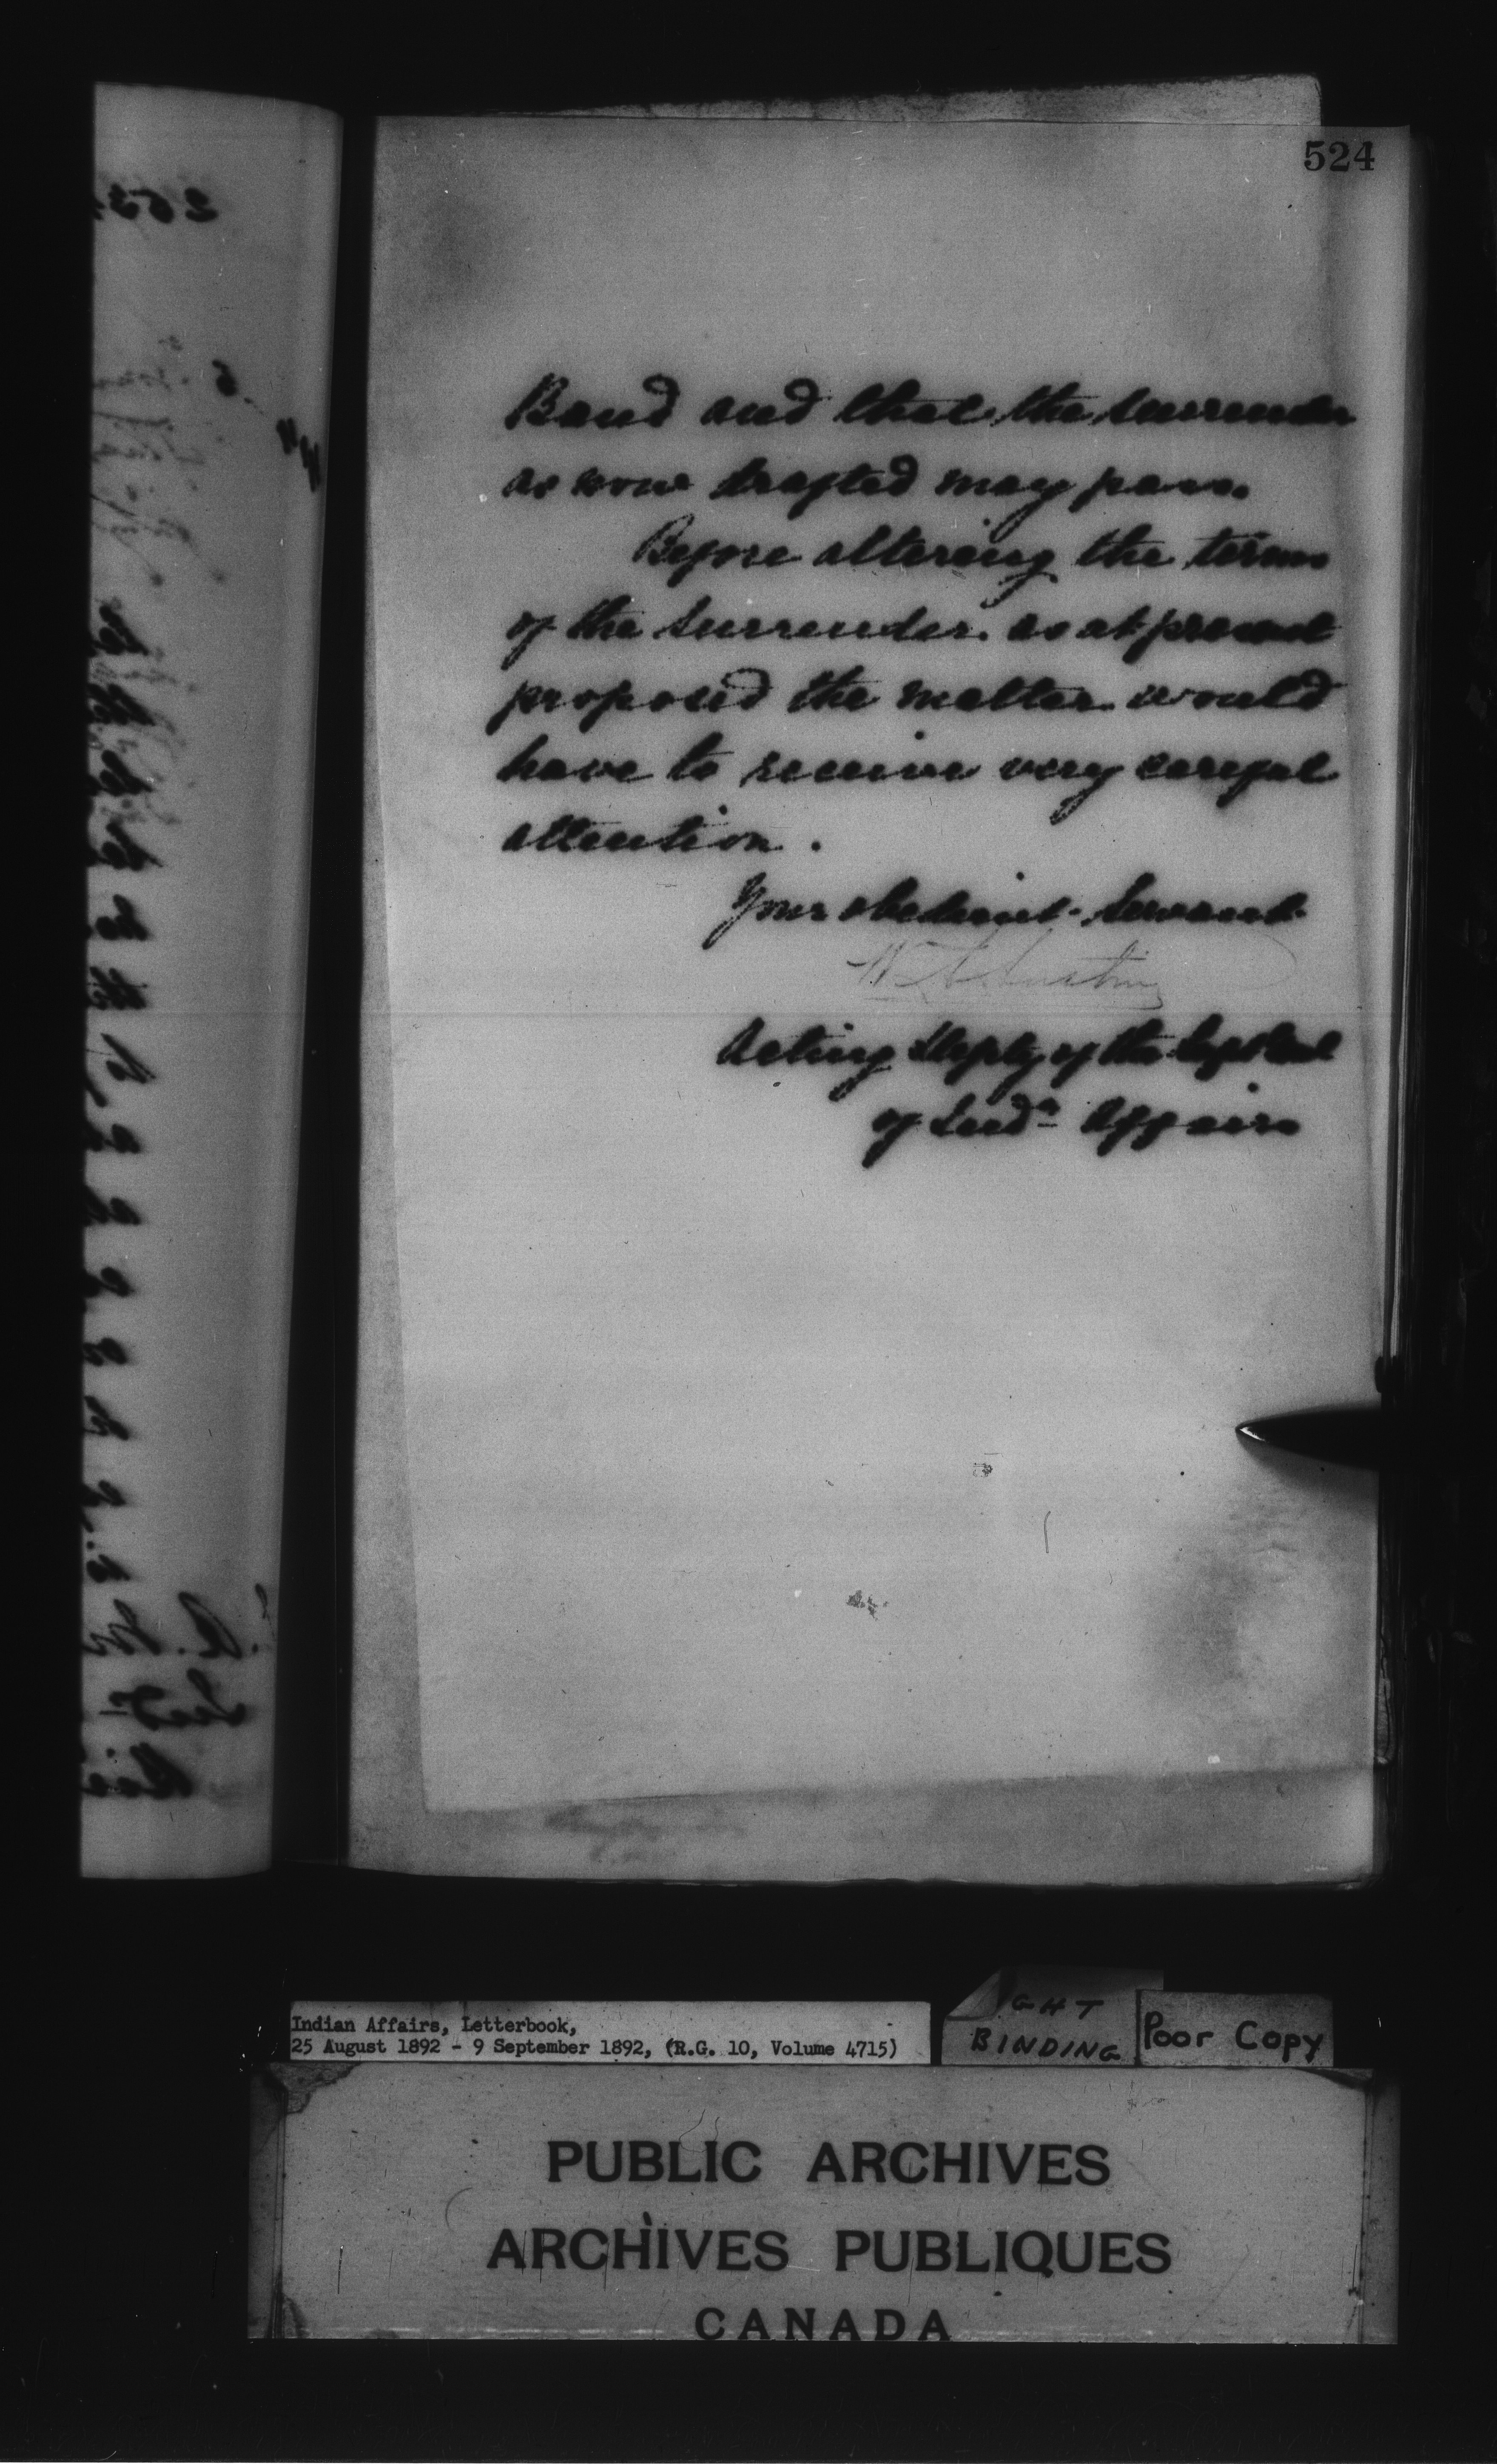 524
Band and that the surrender
as now drafted may pass.
Before altering the terms
of the Surrender as at present
proposed the matter would
have to receive very careful
attention.
Your obedient Servant
Acting Deputy of the Supt Genl
of Indn Affairs
Indian Affairs, Letterbook,
25 August 1892 - 9 September 1892, (R.G. 10, Volume 4715)
GHT
BINDING
Poor Copy
PUBLIC ARCHIVES
ARCHIVES PUBLIQUES
CANADA